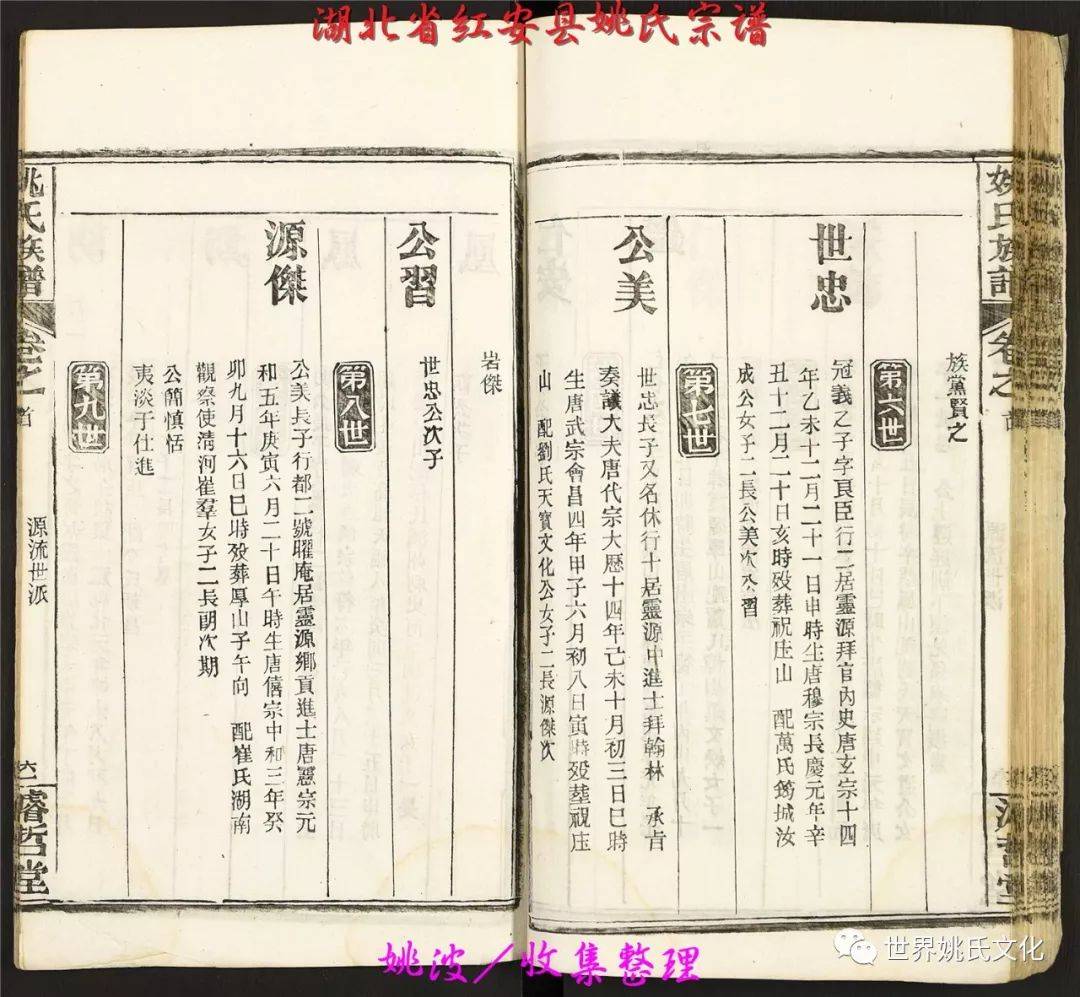 湖北省红安县姚氏宗谱
姚氏族譜
卷之
首
濬哲堂
族黨賢之
第六世
世忠
冠義之子字良臣行二居靈源拜官內史唐玄宗十四
年乙未十二月二十一日申時生唐穆宗長慶元年辛
丑十二月二十日亥時歿葬祝庄山 配萬氏鍚城汝
成公女子二長公美次公習
第七世
公美
世忠長子又名休行十居靈源中進士拜翰林 承旨
奏議大夫唐代宗大曆十四年己未十月初三日巳時
生唐武宗會昌四年甲子六月初八日寅時歿葬視庄
山 配劉氏天寶文化公女子二長源傑次
岩傑
公習
世忠公次子
第八世
源傑
公美長子行都二號曜庵居靈源鄉貢進士唐憲宗元
和五年庚寅六月二十日午時生唐僖宗中和三年癸
卯九月十六日巳時歿葬厚山子午向 配崔氏湖南
觀察使清河崔羣女子二長朗次期
公簡慎恬
夷淡于仕進
第九世
姚氏族譜
卷之
首
源流世派
六
濬哲堂
姚波／收集整理
世界姚氏文化